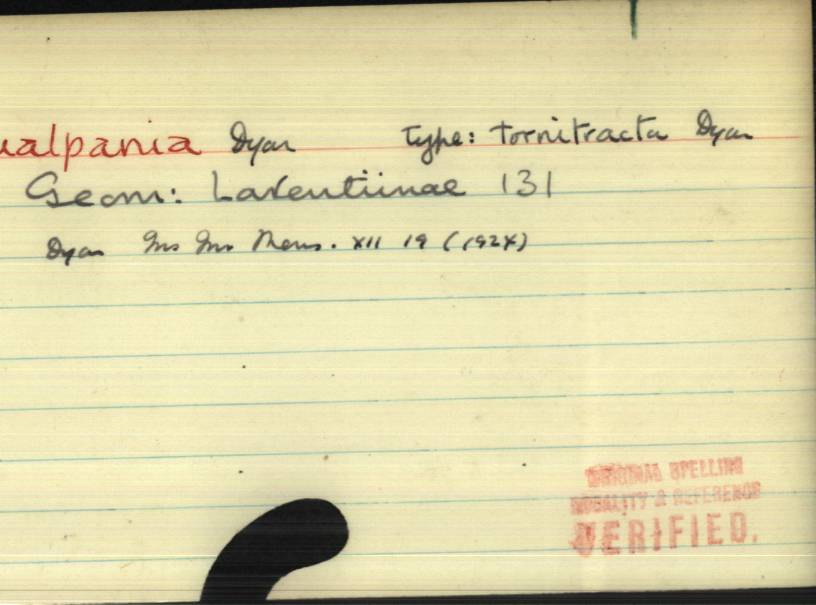 ualpania Dyar Type: tornitracta Dyar
Geom: Larentiinae 131
Dyar Ins Ins Mens. XII 19 (1924)
ORIGINAL SPELLING
MODALITY & REFERENCE
VERIFIED.